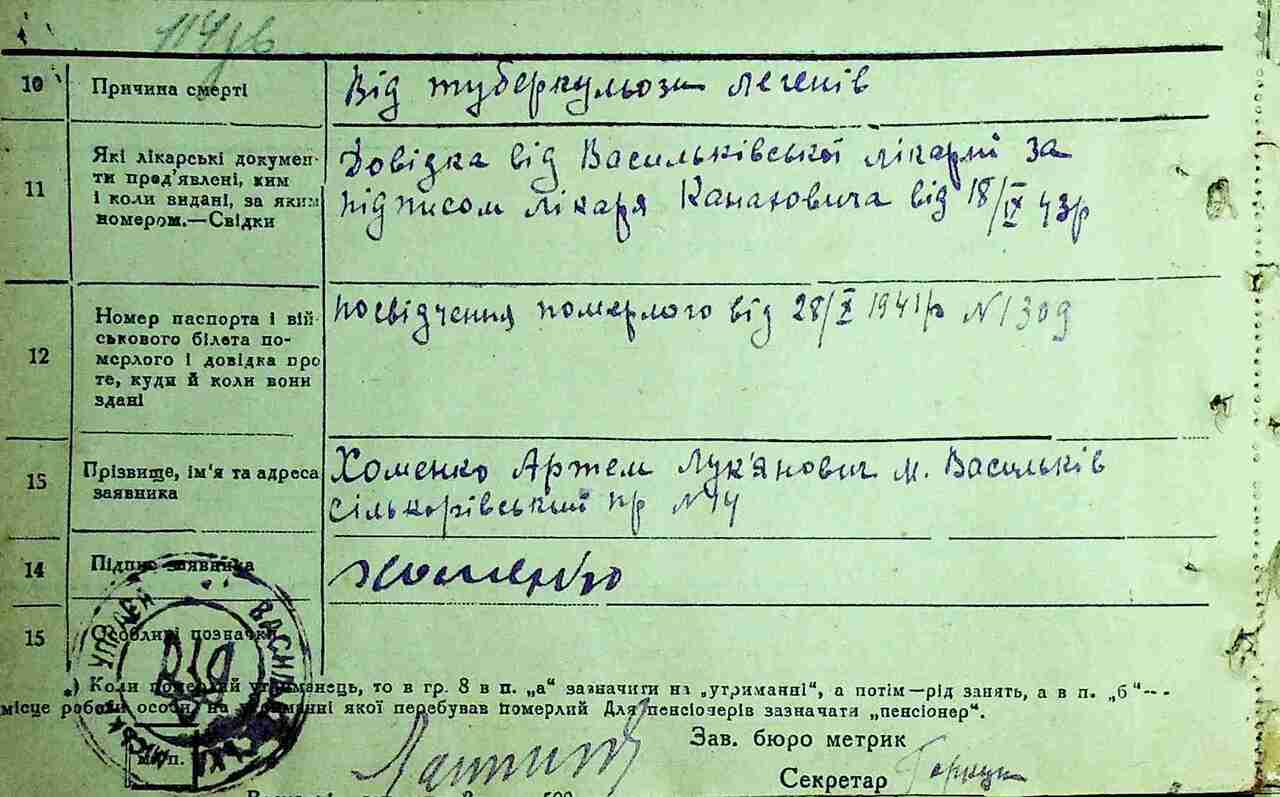 10 Причина смерті Від туберкульози легенів
11 Які лікарські докумен-
ти пред'явлені, ким
і коли видані, за яким
номером.—Свідки
Довідка від Васильківської лікарні за
підписом лікаря Канаховича від 18/IX 43р
12 Номер паспорта і вій-
ськового білета по-
мерлого і довідка про
те, куди й коли вони
здані
посвідчення померлого від 28/X 1941р N1309
13 Прізвище, ім'я та адреса
заявника
Хоменко Артем Лук'янович м. Васильків
Сількорівський пр N14
14 Підпис заявника Хоменко
15 Особливі позначки
*) Коли померлий утриманець, то в гр. 8 в п. „а“ зазначити на „утриманні“, а потім—рід занять, а в п. „б“—
місце роботи особи, на утриманні якої перебував померлий Для пенсіонерів зазначати „пенсіонер“.
Зав. бюро метрик
м. п.
Секретар